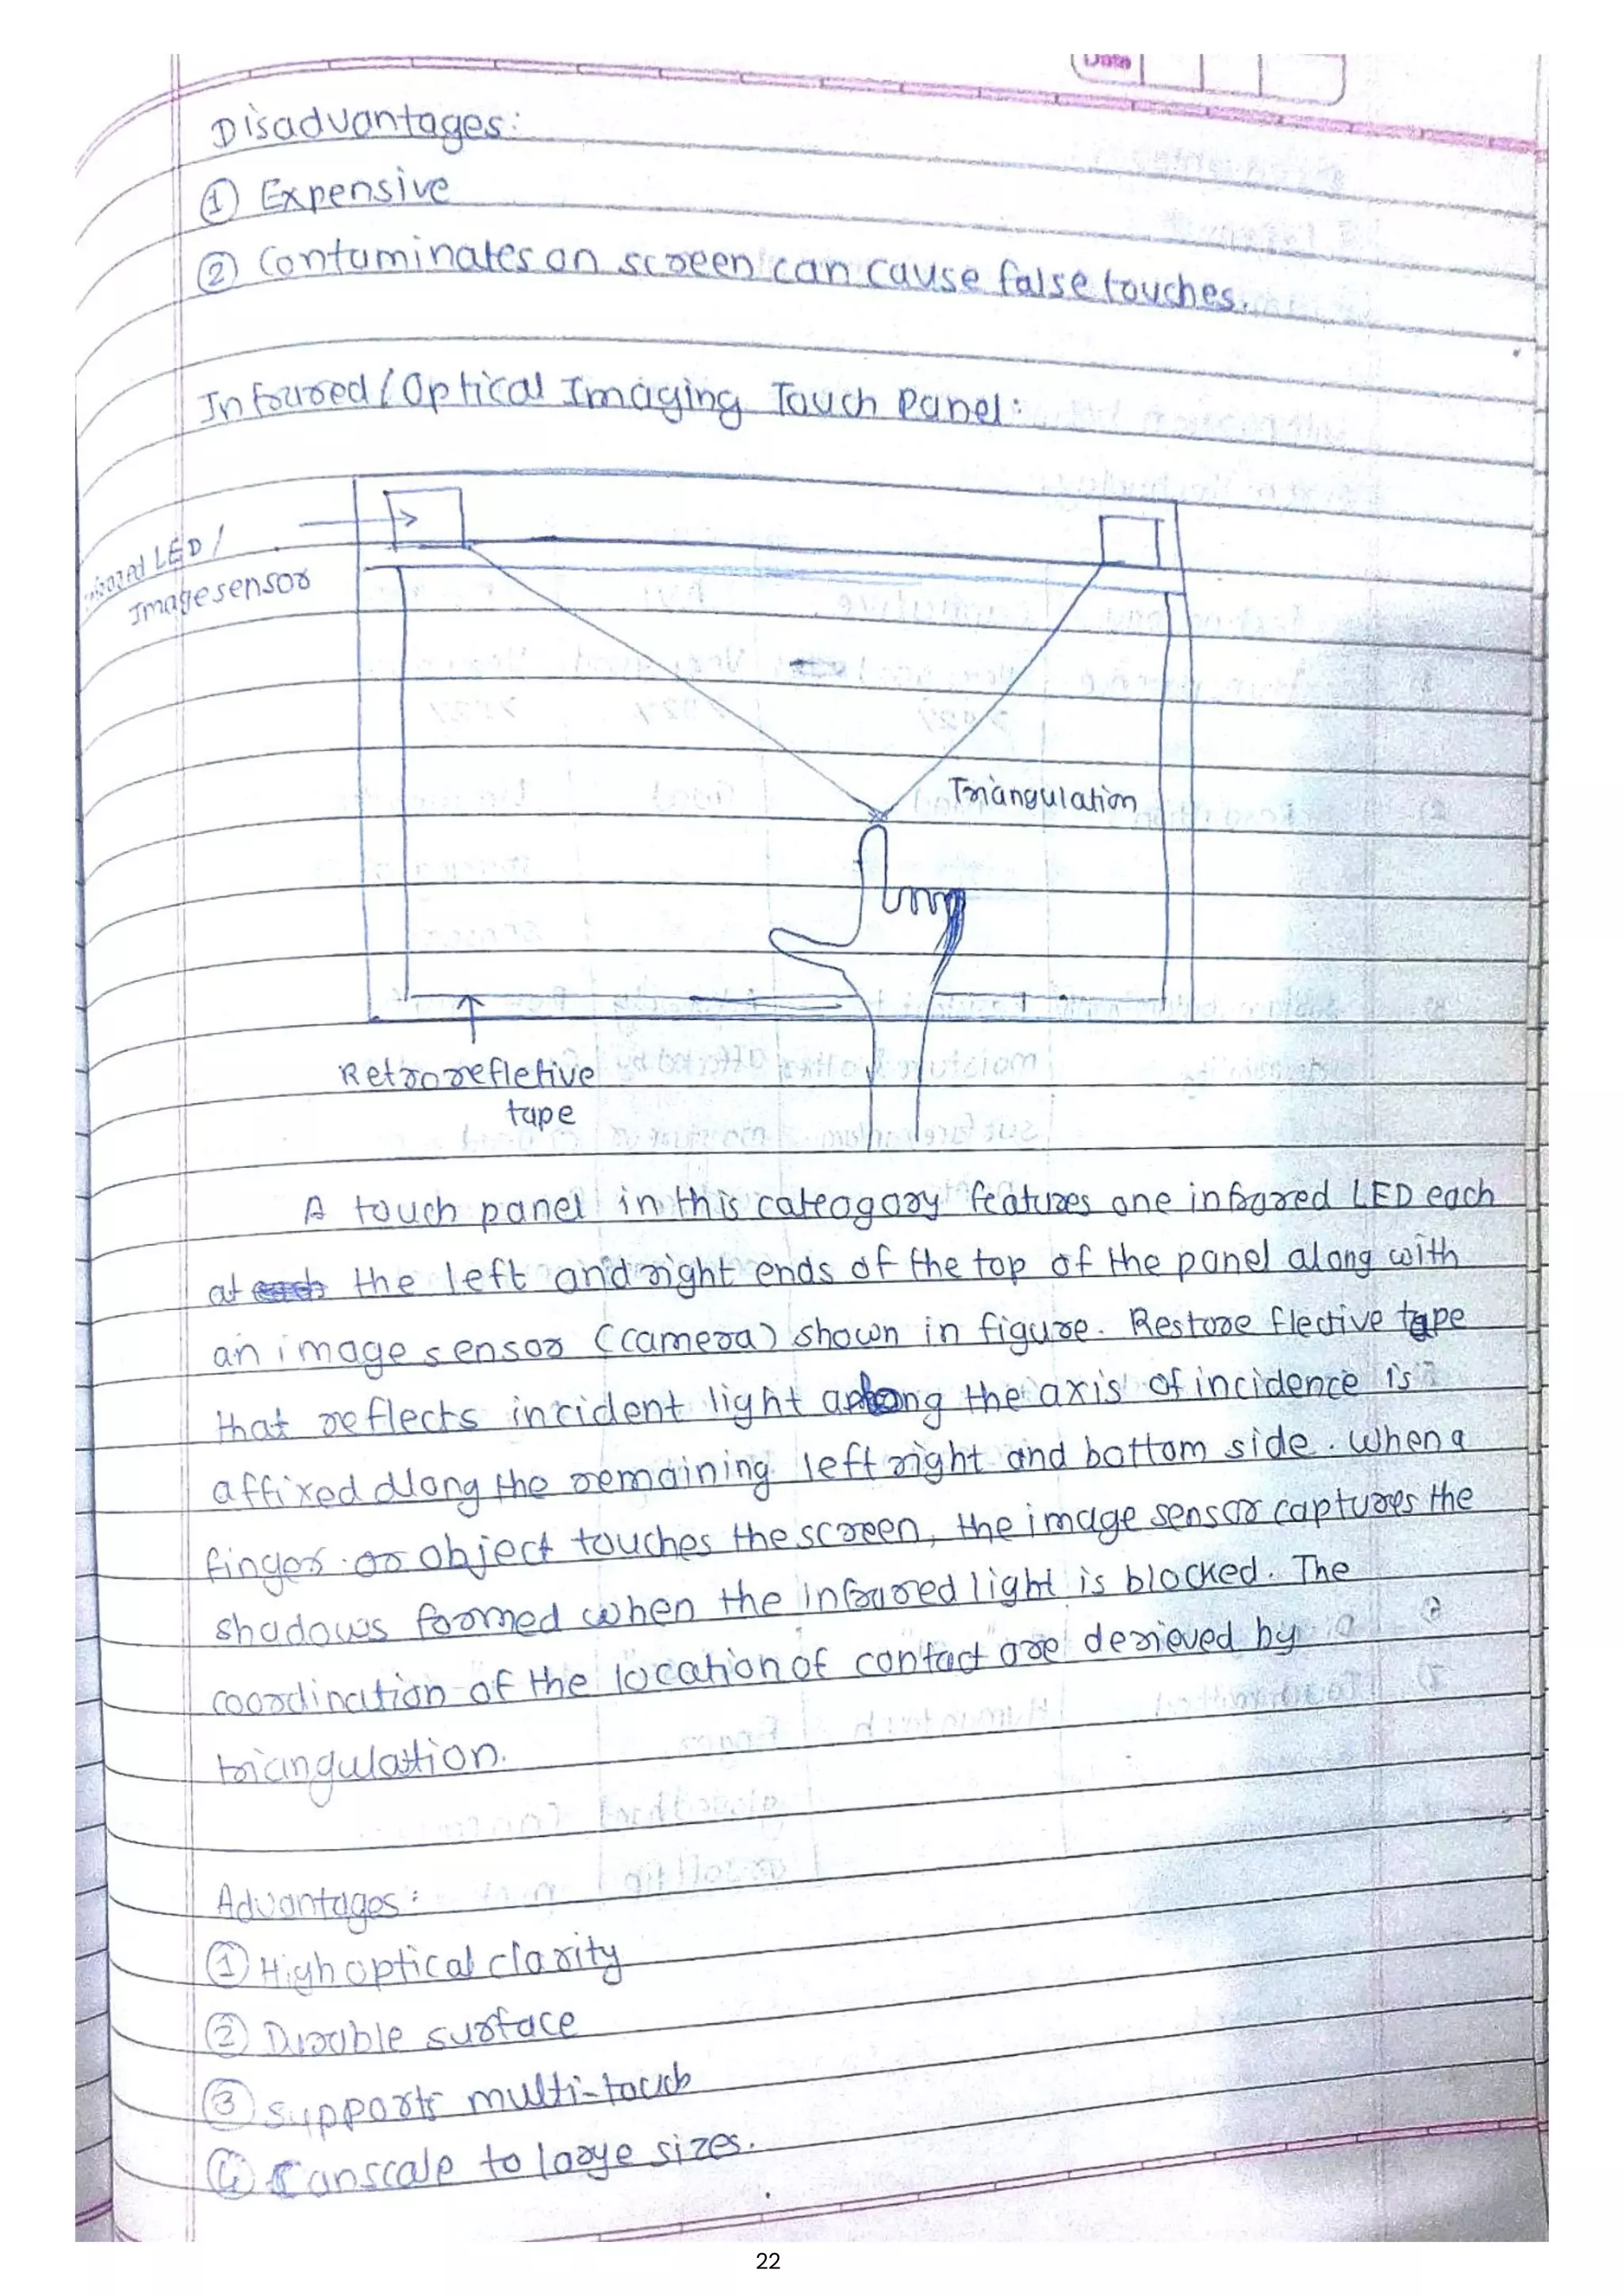 Date
Disadvantages:
① Expensive
② Contaminates on screen can cause false touches.
Infrared / Optical Imaging Touch Panel:
LED /
Image sensor
Triangulation
Retrorefletive
tape
A touch panel in this cateagory features one infrared LED each
at the left and right ends of the top of the panel along with
an image sensor (camera) shown in figure. Restore flective tape
that reflects incident light along the axis of incidence is
affixed along the remaining left right and bottom side. When a
finger or object touches the screen, the image sensor captures the
shadows formed when the infrared light is blocked. The
coordination of the location of contact are derieved by
triangulation.
Advantages:
① High optical clarity
② Durable surface
③ Supports multi-touch
④ Can scale to large sizes.
22